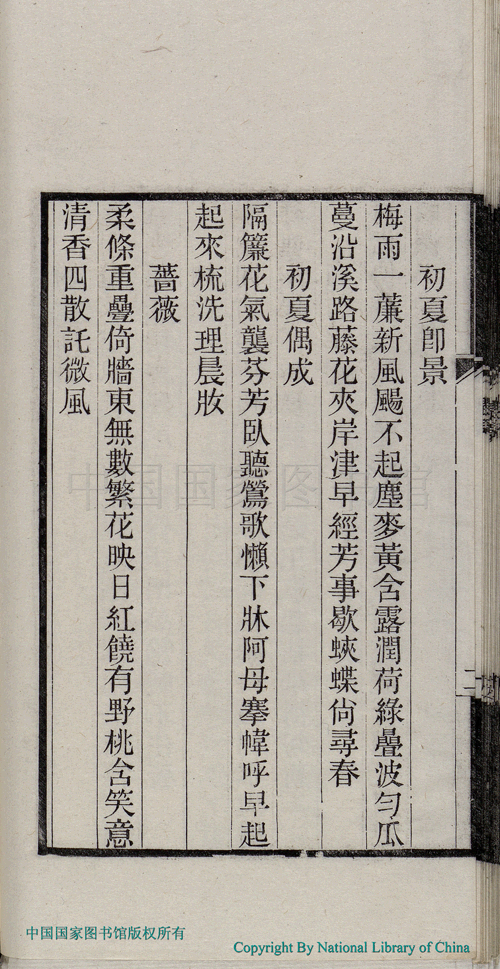 初夏卽景
梅雨一蔍新風颺不起塵麥黃含露潤荷綠疊波勻瓜
蔓沿溪路藤花夾岸津早經芳事歇蛺蝶尙尋春
初夏偶成
隔簾花氣襲芬芳臥聽鶯歌懶下牀阿母搴幃呼早起
起來梳洗理晨妝
薔薇
柔條重疊倚牆東無數繁花映日紅饒有野桃含笑意
清香四散託微風
二
中国国家图书馆
中国国家图书馆版权所有
Copyright By National Library of China